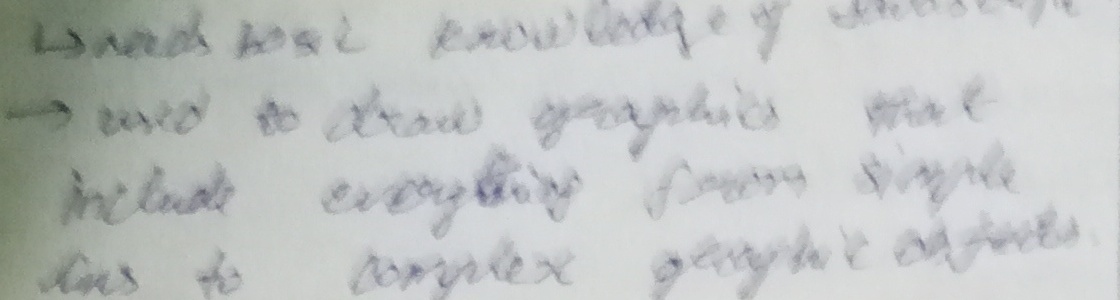 ↳ needs basic knowledge of Javascript
→ used to draw graphics that
include everything from simple
lines to complex graphic objects.